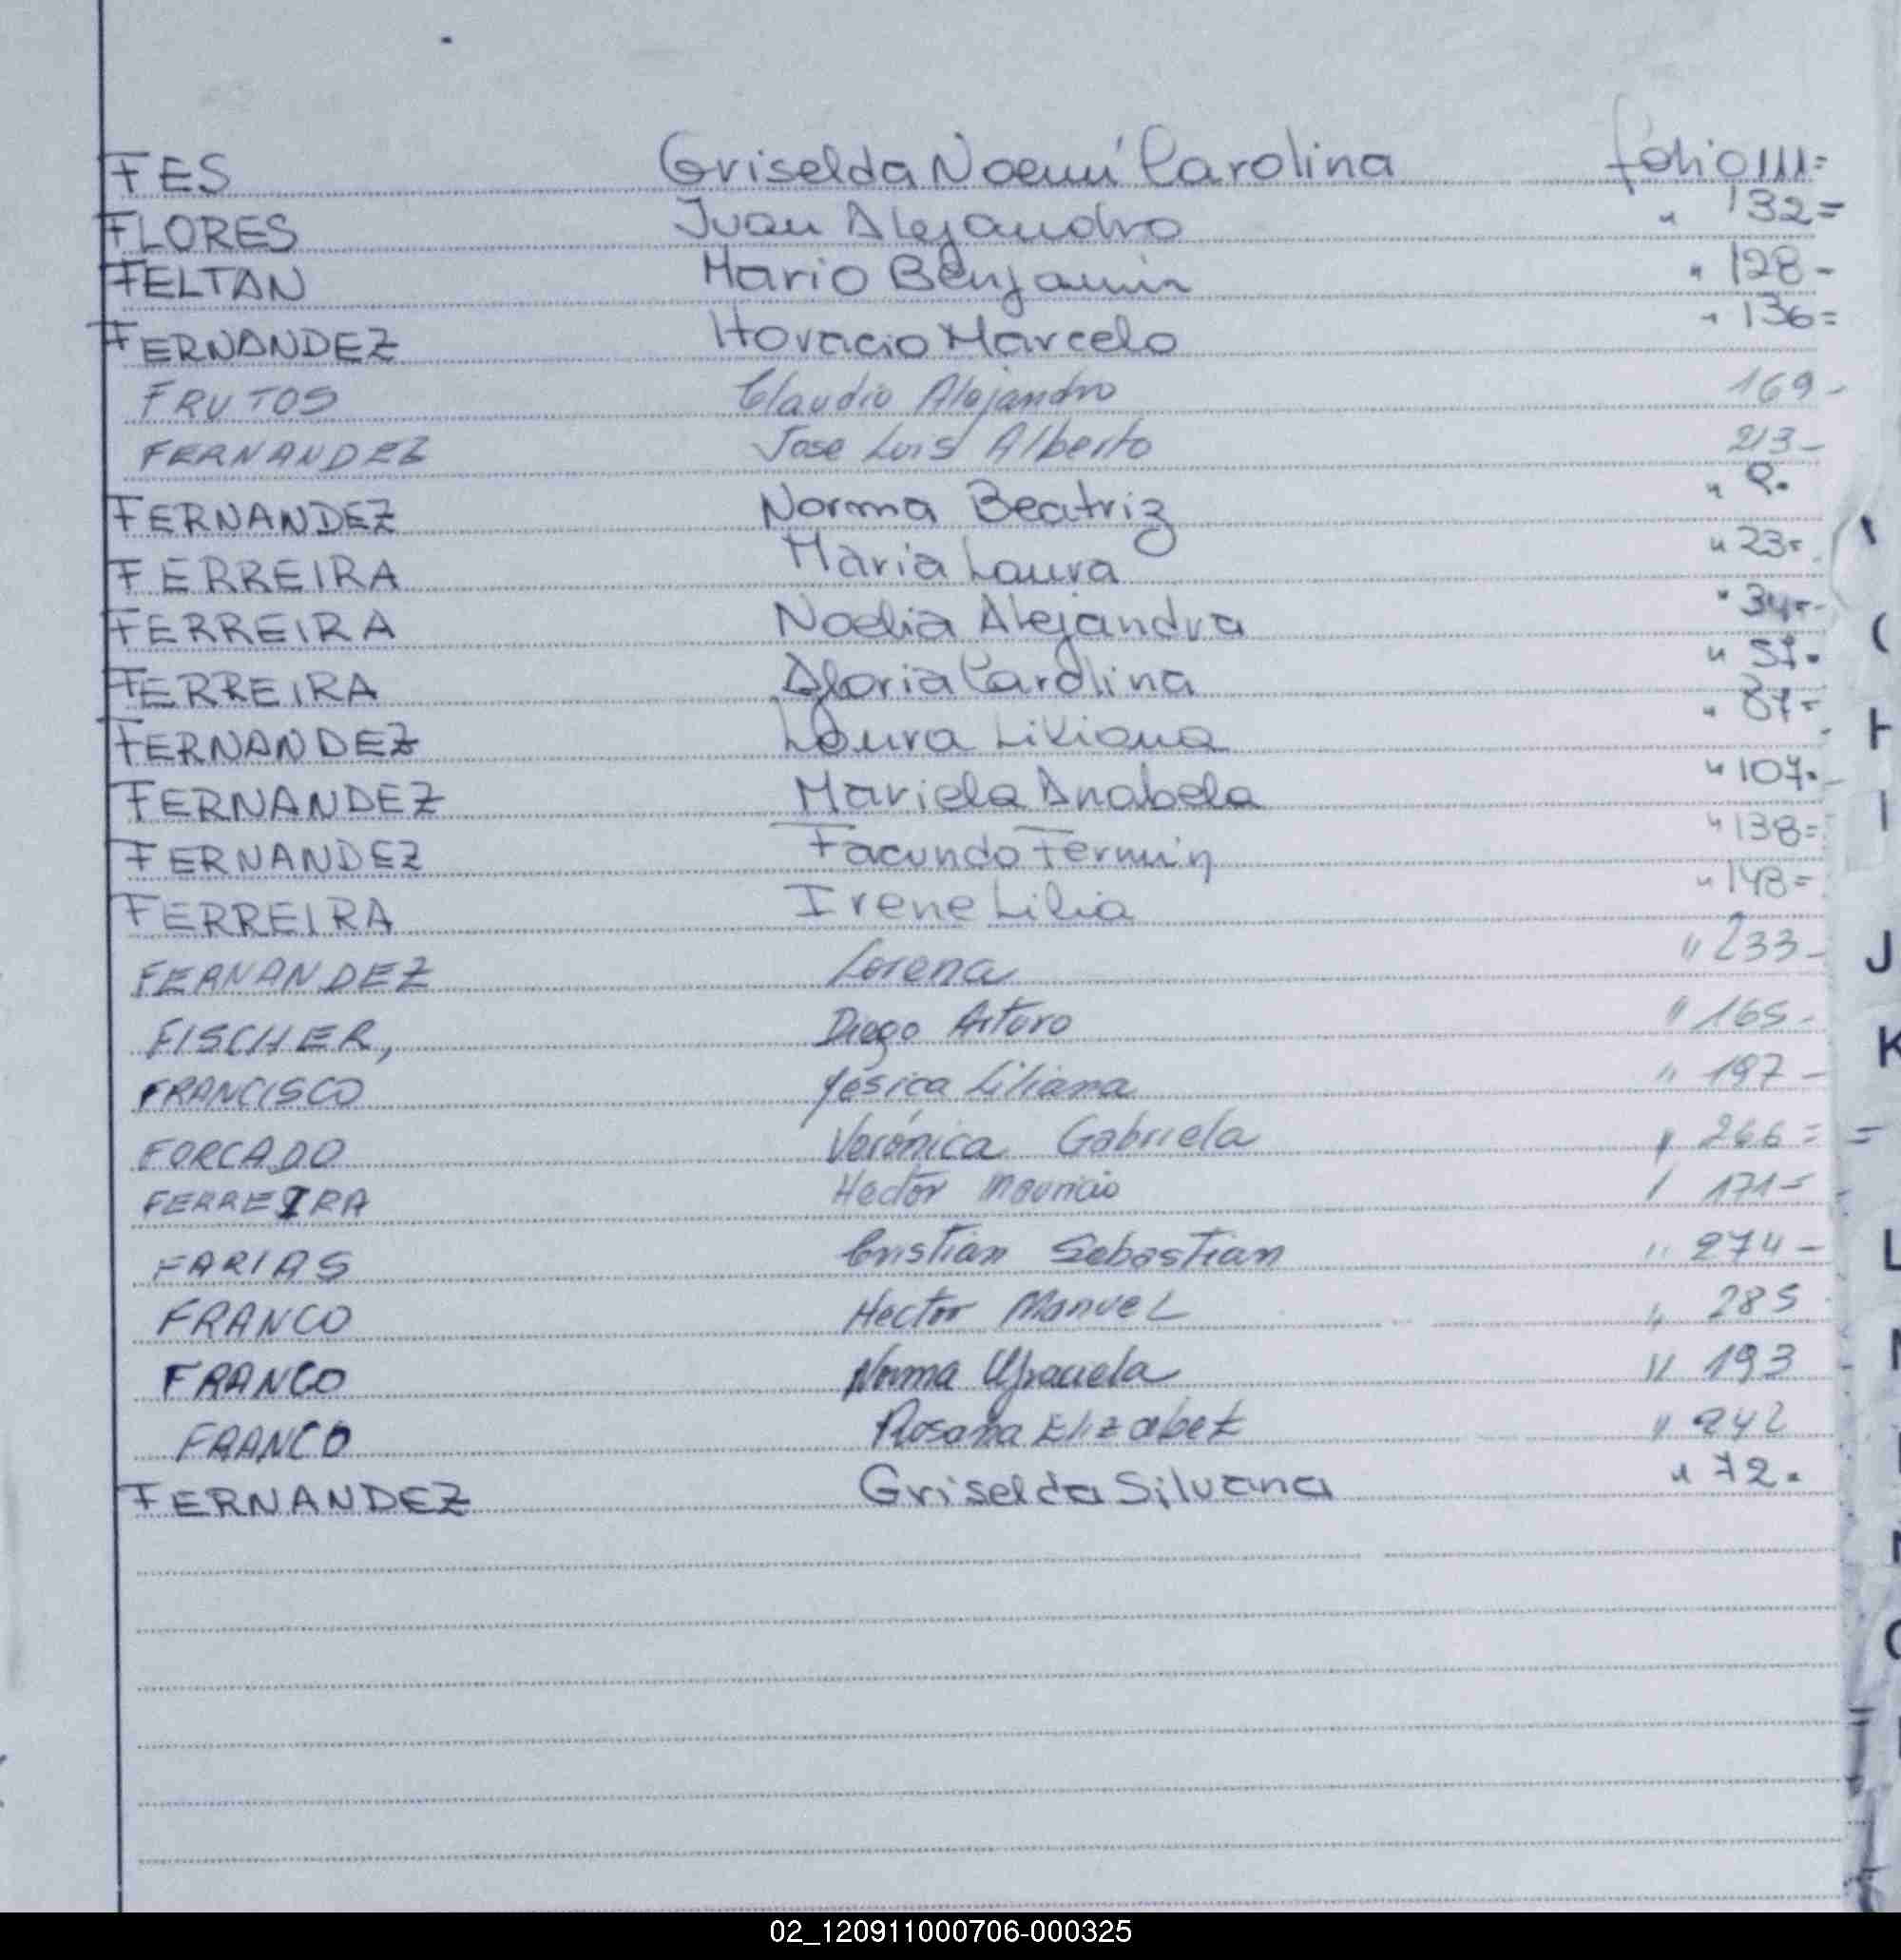 FES Griselda Noemí Carolina folio 111=
FLORES Juan Alejandro " 132=
FELTAN Mario Benjamin " 128-
FERNANDEZ Horacio Marcelo " 136=
FRUTOS Claudio Alejandro 169-
FERNANDEZ Jose Luis Alberto 213-
FERNANDEZ Norma Beatriz "
FERREIRA Maria Laura " 23=
FERREIRA Noelia Alejandra " 34=
FERREIRA Gloria Carolina " 57.
FERNANDEZ Laura Liliana " 87=
FERNANDEZ Mariela Anabela " 107.
FERNANDEZ Facundo Fermín " 138=
FERREIRA Irene Lilia " 148=
FERNANDEZ Lorena " 233-
FISCHER, Diego Arturo " 165-
FRANCISCO Yésica Liliana " 197-
FORCADO Verónica Gabriela " 266=
FERREIRA Hector Mauricio " 171=
FARIAS Cristian Sebastian " 274-
FRANCO Hector Manuel " 285
FRANCO Norma Graciela " 193
FRANCO Rosana Elizabet " 242
FERNANDEZ Griselda Silvana " 72.
H
I
J
K
L
02_120911000706-000325